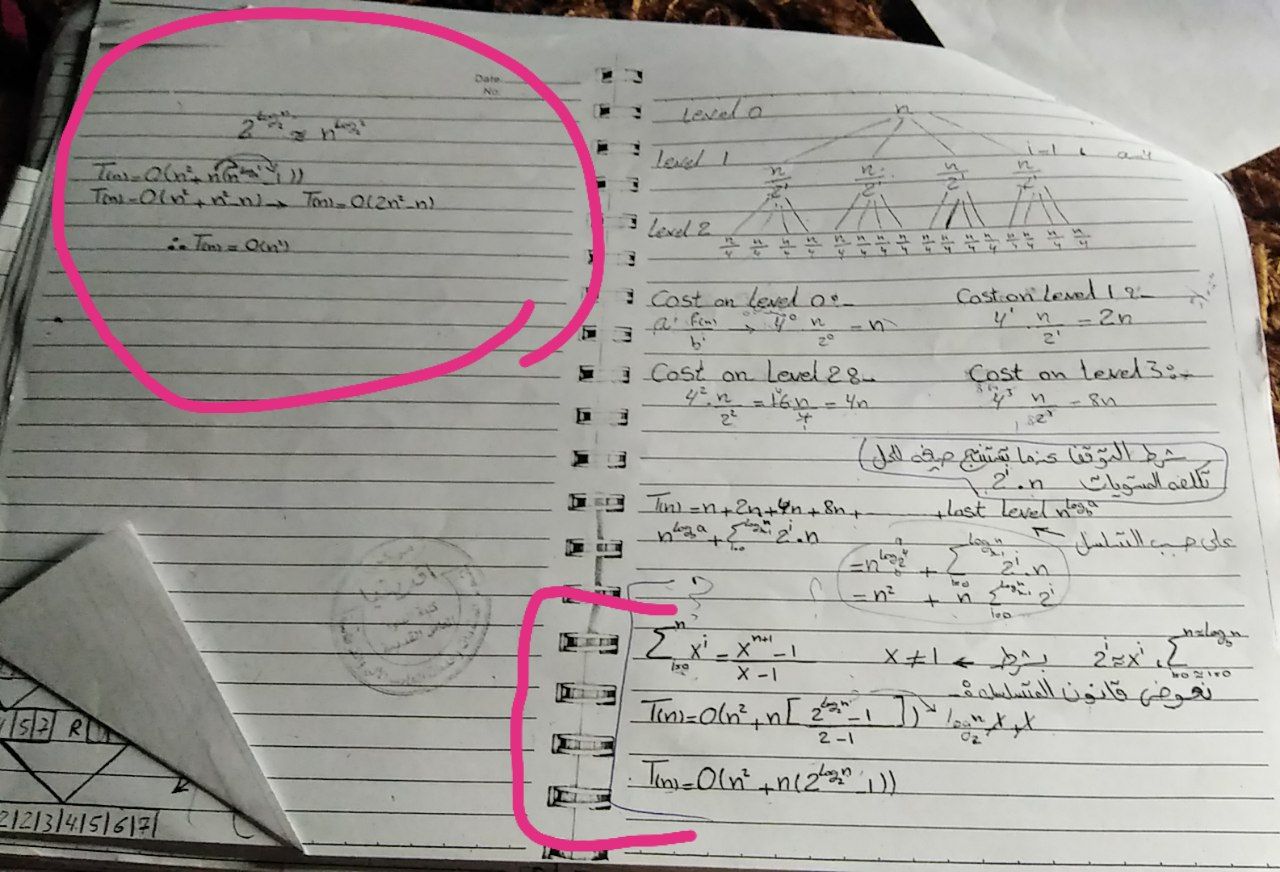 Date
No.
2^{log_2 n} ≈ n^{log_2 2}
T(n)=O(n²+n(n^{log_2 2}-1))
T(n)=O(n²+n²-n) → T(n)=O(2n²-n)
∴ T(n)=O(n²)
Level 0 n
Level 1 n/2¹ n/2¹ n/2¹ n/2¹ i=1, a=4
Level 2 n/4 n/4 n/4 n/4 n/4 n/4 n/4 n/4 n/4 n/4 n/4 n/4 n/4 n/4 n/4 n/4
Cost on Level 0:- Cost on Level 1:-
aⁱ f(n)/bⁱ → 4⁰ n/2⁰ = n 4¹ · n/2¹ = 2n
Cost on Level 2:- Cost on Level 3:-
4² · n/2² = 16 n/4 = 4n 4³ n/2³ = 8n
شرط التوقف عندما نستنتج صيغه للحل
تكلفه المستويات 2ⁱ·n
T(n)=n+2n+4n+8n+........+last level n^{log_b a}
n^{log_b a}+∑_{i=0}^{log_b n-1} 2ⁱ·n على حسب التسلسل
=n^{log_2 4} + ∑_{i=0}^{log_2 n-1} 2ⁱ·n
=n² + n ∑_{i=0}^{log_2 n-1} 2ⁱ
∑_{i=0}^{n} xⁱ = (x^{n+1}-1)/(x-1) x≠1 ← بشرط 2ⁱ≈xⁱ, ∑_{i=0≈i=0}^{n=log_b n}
نعوض قانون المتسلسله:-
T(n)=O(n²+n[(2^{log_2 n}-1)/(2-1)])
T(n)=O(n²+n(2^{log_2 n}-1))
5|7| R
2|2|3|4|5|6|7|